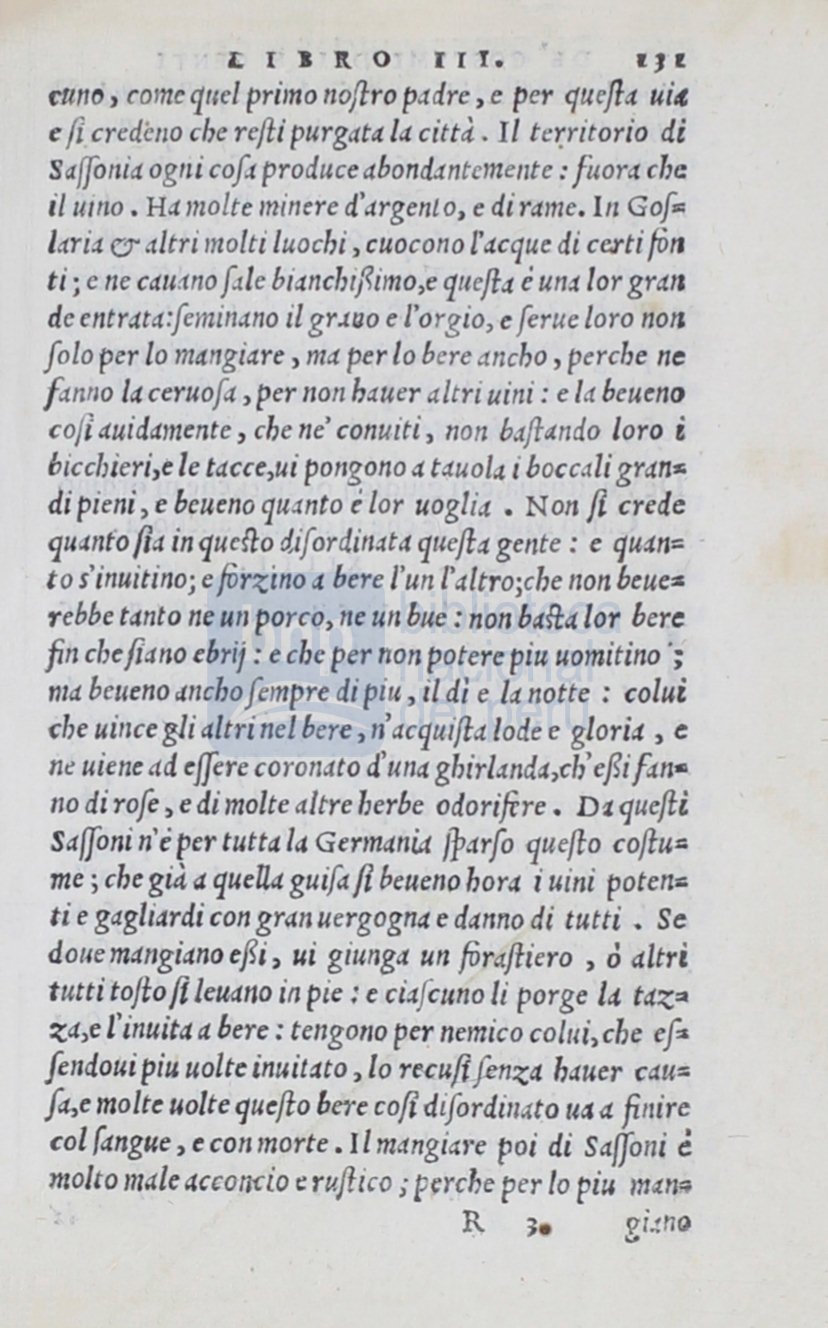 LIBRO III. 131
cuno, come quel primo noſtro padre, e per queſta uia
e ſi credeno che reſti purgata la città. Il territorio di
Saſſonia ogni coſa produce abondantemente : fuora che
il uino. Ha molte minere d'argento, e di rame. In Goſ=
laria & altri molti luochi, cuocono l'acque di certi fon
ti; e ne cauano ſale bianchißimo,e queſta è una lor gran
de entrata:ſeminano il grano e l'orgio, e ſerue loro non
ſolo per lo mangiare, ma per lo bere ancho, perche ne
fanno la ceruoſa, per non hauer altri uini : e la beueno
coſi auidamente, che ne' conuiti, non baſtando loro i
bicchieri,e le tacce,ui pongono a tauola i boccali gran=
di pieni, e beueno quanto è lor uoglia. Non ſi crede
quanto ſia in queſto diſordinata queſta gente : e quan=
to s'inuitino; e forzino a bere l'un l'altro;che non beue=
rebbe tanto ne un porco, ne un bue : non baſta lor bere
fin che ſiano ebrij : e che per non potere piu uomitino ;
ma beueno ancho ſempre di piu, il dì e la notte : colui
che uince gli altri nel bere, n'acquiſta lode e gloria, e
ne uiene ad eſſere coronato d'una ghirlanda,ch'eßi fan=
no di roſe, e di molte altre herbe odorifere. Da queſti
Saſſoni n'è per tutta la Germania ſparſo queſto coſtu=
me; che già a quella guiſa ſi beueno hora i uini poten=
ti e gagliardi con gran uergogna e danno di tutti. Se
doue mangiano eßi, ui giunga un foraſtiero, ò altri
tutti toſto ſi leuano in pie : e ciaſcuno li porge la taz=
za,e l'inuita a bere : tengono per nemico colui,che eſ=
ſendoui piu uolte inuitato, lo recuſi ſenza hauer cau=
ſa,e molte uolte queſto bere coſi diſordinato ua a finire
col ſangue, e con morte. Il mangiare poi di Saſſoni è
molto male acconcio e ruſtico; perche per lo piu man=
R 3. giano
bnp biblioteca
nacional
del perú